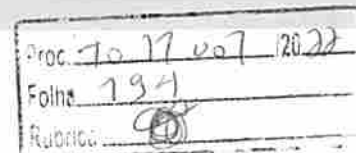 Proc. 7017007 /2022
Folha 194
Rubrica